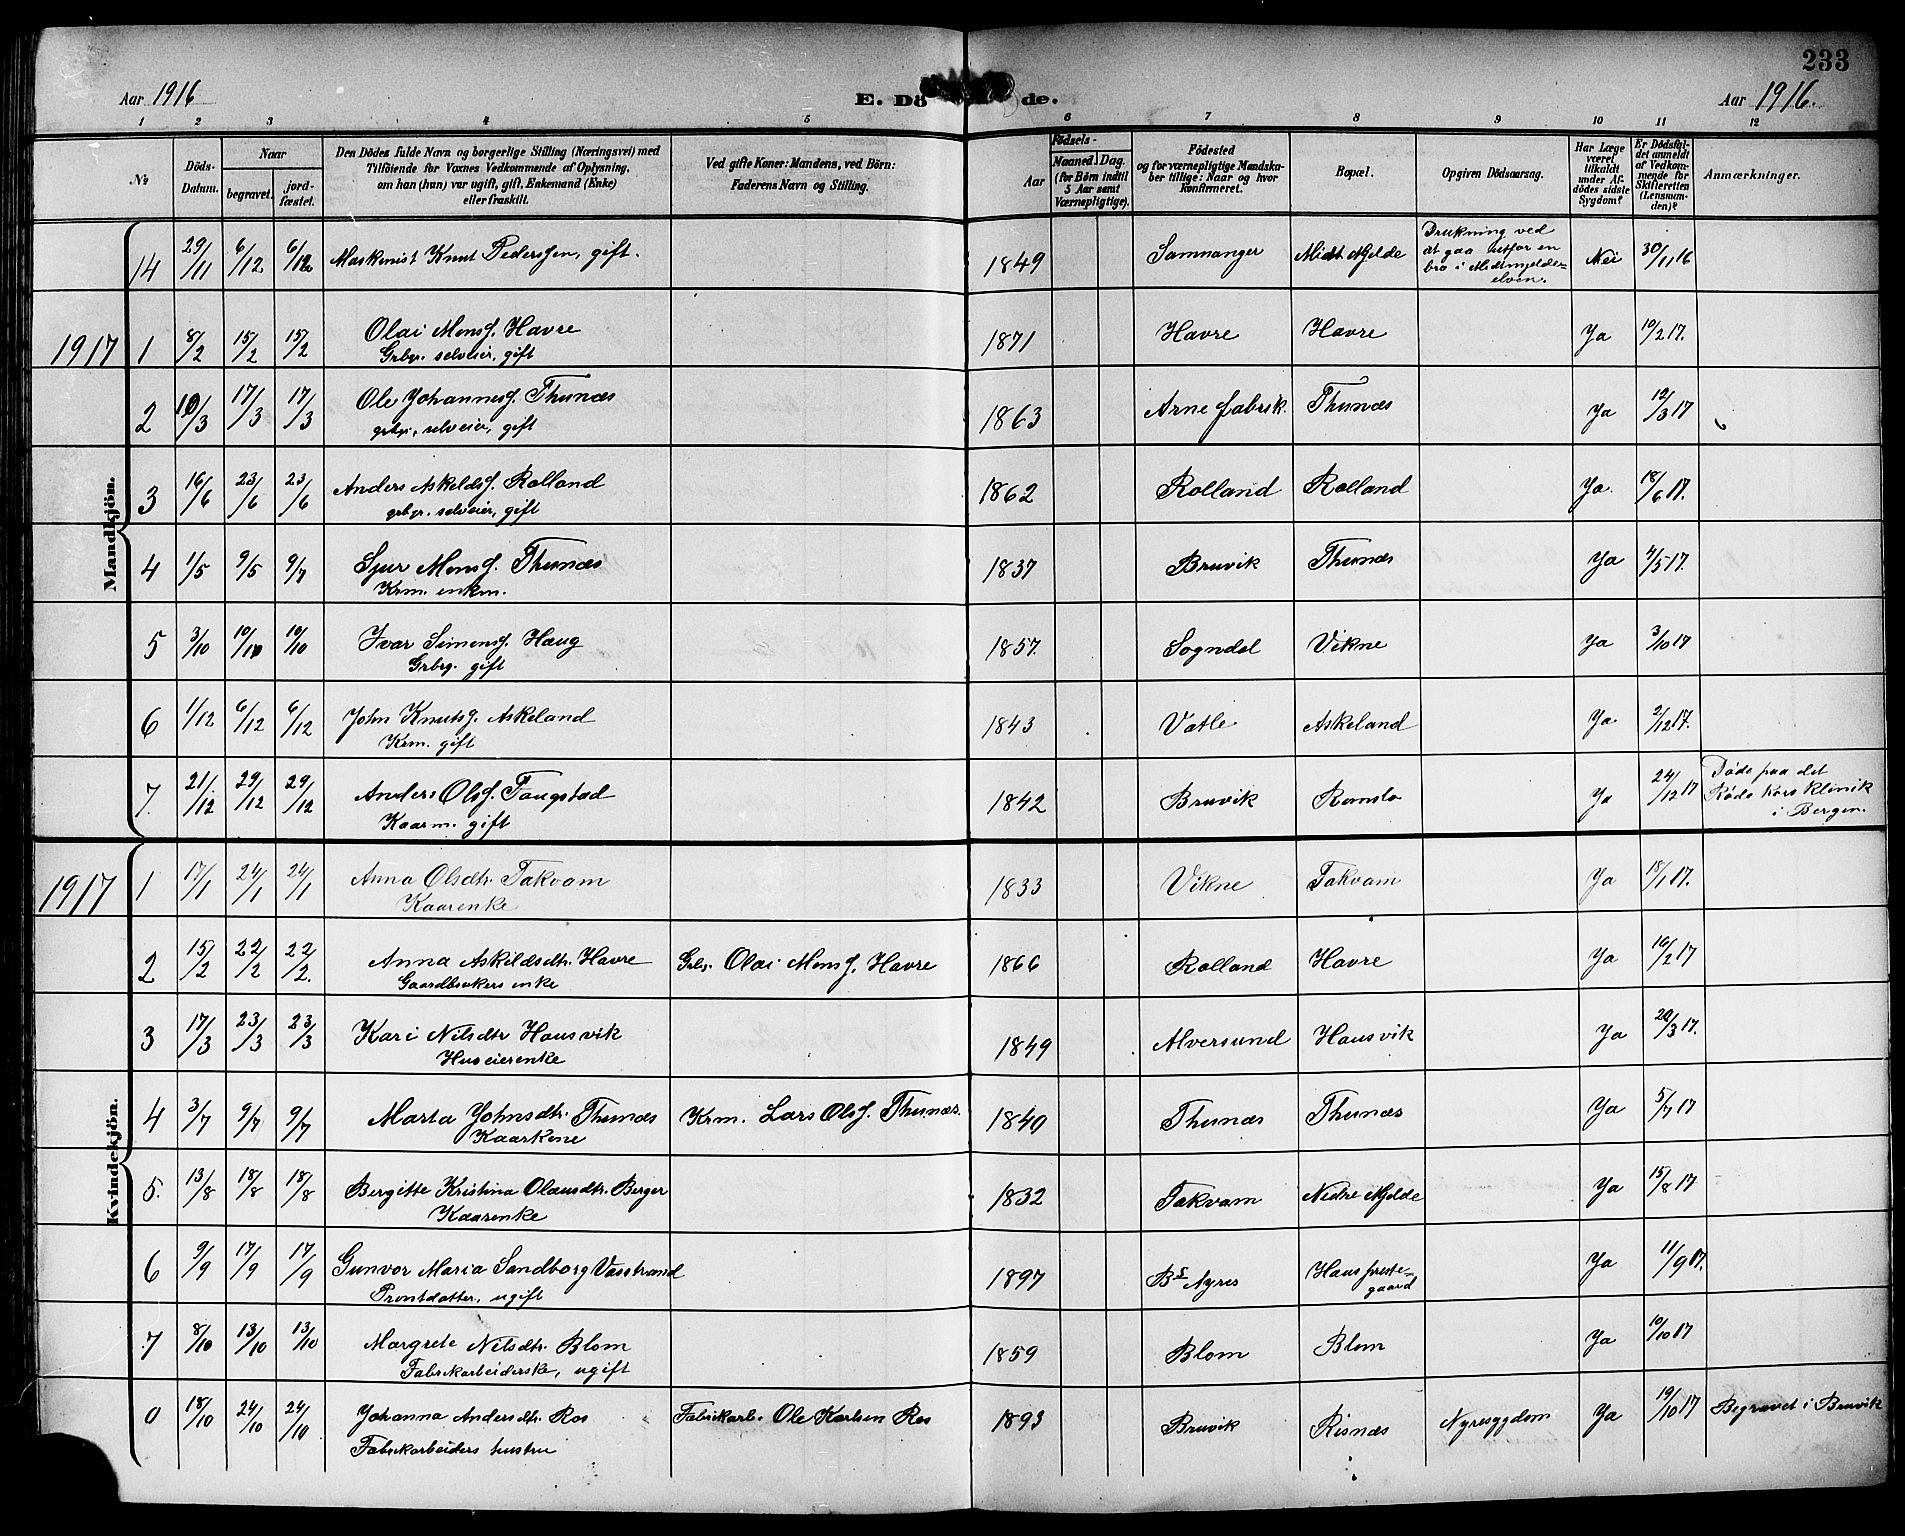 233
Aar 1916
E. Dö de.
Aar 1916.
1 2 3 4 5 6 7 8 9 10 11 12
№
Döds-Datum.
Naar
begravet.
jordfæstet.
Den Dödes fulde Navn og borgerlige Stilling (Næringsvei) med
Tilföiende for Voxnes Vedkommende af Oplysning,
om han (hun) var ugift, gift, Enkemand (Enke)
eller fraskilt.
Ved gifte Koner: Mandens, ved Börn:
Faderens Navn og Stilling.
Födsels-
Aar
Maaned. Dag.
(for Börn indtil
5 Aar samt
Værnepligtige).
Födested
og for værnepligtige Mandskaber tillige: Naar og hvor
Konfirmeret.
Bopæl.
Opgiven Dödsaarsag.
Har Læge
været
tilkaldt
under Afdödes sidste
Sygdom?
Er Dödsfaldet anmeldt
af Vedkommende for
Skifteretten
(Lensmanden)?
Anmærkninger.
Mandkjön.
14 29/11 6/12 6/12 Maskinist Knut Pederssen, gift. 1849 Samnanger Midt Mjelde Drukning ved
at gaa utfor en
bro i Midtmjelde-
elven. Nei 30/11 16
1917 1 8/2 15/2 15/2 Olai Monsf. Havre 1871 Havre Havre Ja 10/2 17.
Grbgr. selveier, gift
2 10/3 17/3 17/3 Ole Johannesf. Thunæs 1863 Arne fabrik. Thunæs Ja 12/3 17
grbgr, selveier, gift
3 16/6 23/6 23/6 Anders Askeldsf. Rolland 1862 Rolland Rolland Ja. 18/6 17.
grbgr. selveier, gift
4 1/5 9/5 9/7 Sjur Monsf. Thunæs 1837 Bruvik Thunæs Ja 4/5 17.
Krm. enkm.
5 3/10 10/10 10/10 Ivar Simonsf. Haug 1857. Sogndal Vikne Ja 3/10 17
Grbrg. gift
6 1/12 6/12 6/12 John Knutsf. Askeland 1843 Vatle Askeland Ja 2/12 17.
Krm. gift
7. 21/12 29/12 29/12 Anders Olsf. Taugstad 1842 Bruvik Romslo Ja 24/12 17 Döde paa det
Röde Kors klinik
i Bergen.
Kaarm. gift
Kvindekjön.
1917 1 17/1 24/1 24/1 Anna Olsdtr. Takvam 1833 Vikne Takvam Ja 18/1 17.
Kaarenke
2 15/2 22/2 22/2. Anna Askildsdtr. Havre Grbr. Olai Monsf. Havre 1866 Rolland Havre Ja 10/2 17
Gaardbrukers enke
3 17/3 23/3 23/3 Kari Nilsdtr Hausvik 1849 Alversund Hausvik Ja 20/3 17.
Huseierenke
4 3/7 9/7 9/7 Marta Johnsdtr. Thunæs Krm. Lars Olsf. Thunæs. 1840 Thunæs Thunæs Ja 5/7 17
Kaarkone
5. 13/8 18/8 18/8 Bergitte Kristina Olausdtr. Berger 1832 Takvam Nedre Mjelde Ja 15/8 17
Kaarenke
6 9/9 17/9 17/9 Gunvor Maria Sandborg Vasstrand 1897 Bs Ayres Haus preste-
gaard Ja 11/9 17.
Prostdatter, ugift
7 8/10 13/10 13/10 Margrete Nilsdtr. Blom 1859 Blom Blom Ja 10/10 17
Fabrikarbeiderske, ugift
0 18/10 24/10 24/10 Johanna Andersdtr. Ros Fabrikarb. Ole Karlsen Ros 1893 Bruvik Risnæs Nyresygdom Ja 19/10 17 Begravet i Bruvik
Fabrikarbeiders hustru